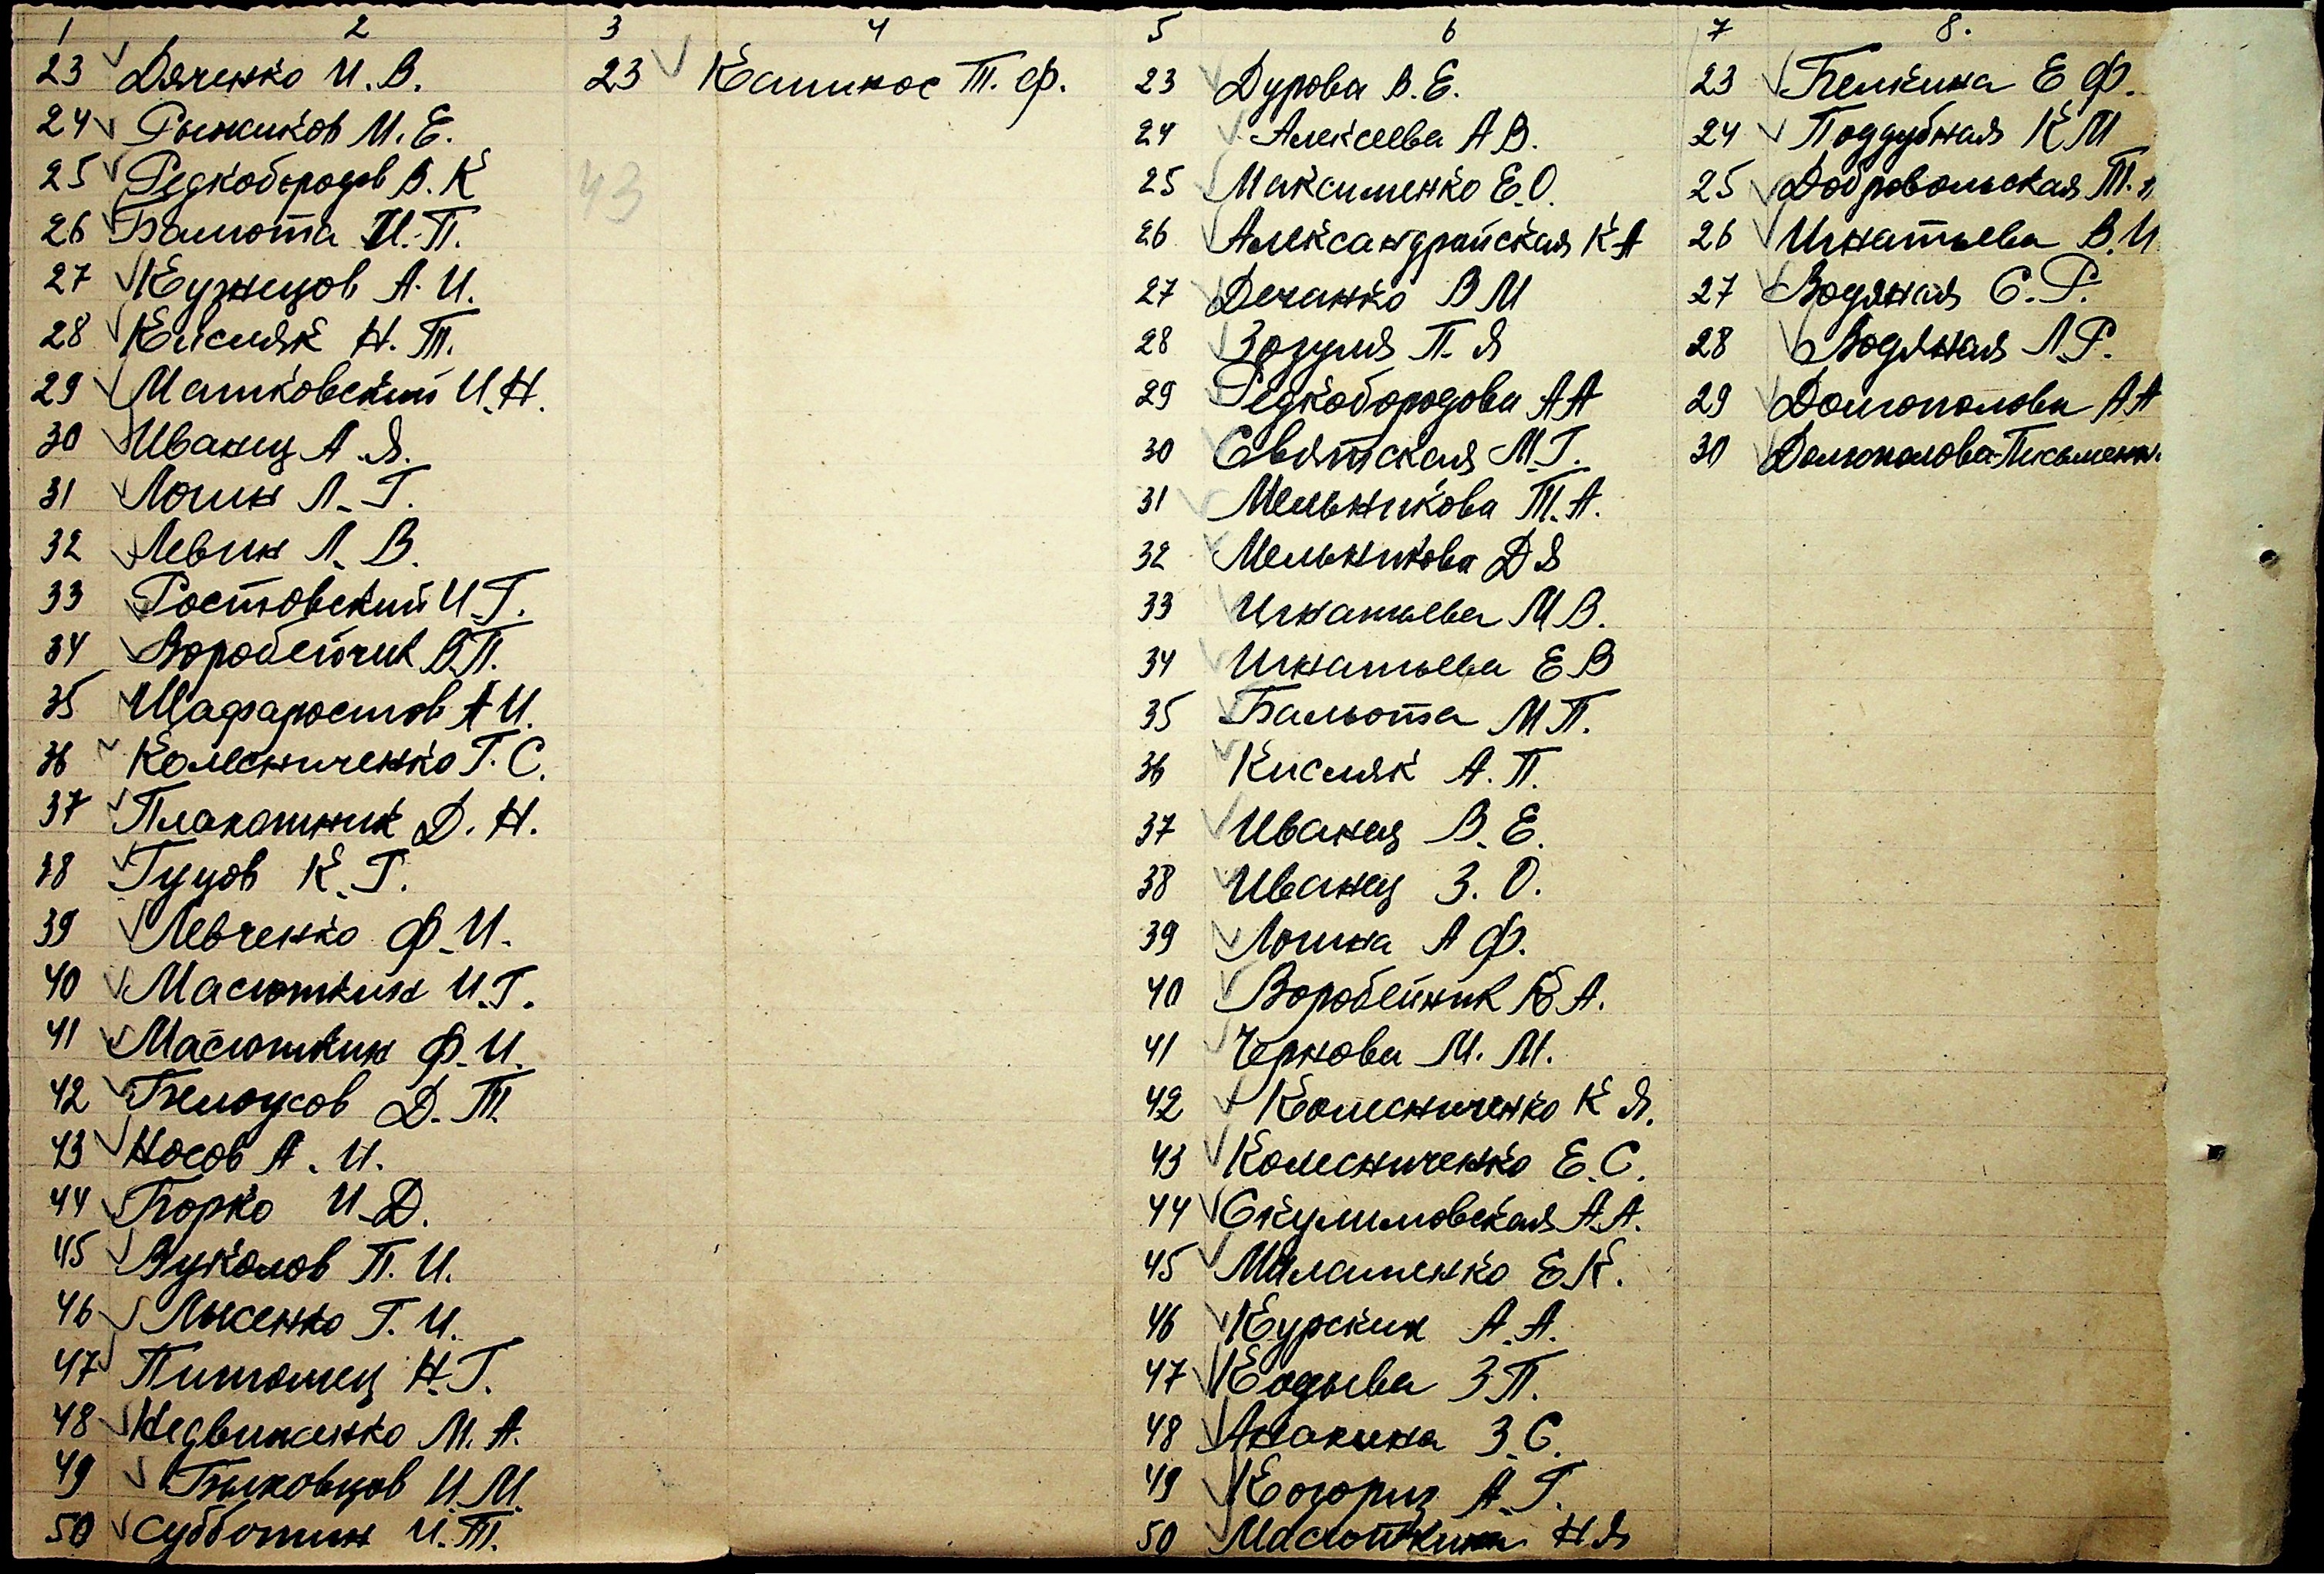 1 2 3 4 5 6 7 8.
23 Дяченко И.В. 23 Кашинос Т.Ф. 23 Дурова В.Е. 23 Белкина Е Ф.
24 Рыжиков М.Е. 24 Алексеева А В. 24 Поддубная К М
25 Редкобородов В.К 43 25 Максименко Е.О. 25 Добровольская Т.
26 Балюта И.П. 26 Александрийская К А 26 Игнатьева В.И
27 Кузнецов А.И. 27 Деченко В М 27 Водяная С.Р.
28 Кисляк Н.Т. 28 Зозуля П.Я 28 Водяная Л.Р.
29 Машковский И.Н. 29 Редкобородова А А 29 Долгополова А А
30 Иванец А.Я. 30 Святская М.Г. 30 Долгополова-Письменн.
31 Логин Л.Г. 31 Мельникова Т.А.
32 Левин Л.В. 32 Мельникова Д Я
33 Ростовский И.Г. 33 Игнатьева М В.
34 Воробейчик В.П. 34 Игнатьева Е В
35 Шафаростов А И. 35 Бальота М П.
36 Колесниченко Г.С. 36 Кисляк А.П.
37 Плакатник Д.Н. 37 Иванец В.Е.
38 Гуцов К.Г. 38 Иванец З.О.
39 Левченко Ф.И. 39 Логина А Ф.
40 Масюткин И.Г. 40 Воробейник К А.
41 Масюткин Ф.И. 41 Чернова М.М.
42 Белоусов Д.Т. 42 Колесниченко К Я.
43 Носов А.И. 43 Колесниченко Е.С.
44 Борко И.Д. 44 Скулимовская А.А.
45 Вуколов П.И. 45 Малашенко Е.К.
46 Лысенко Г.И. 46 Курскин А.А.
47 Питомец Н.Г. 47 З П.
48 Недвиженко М.А. 48 Анакина З.С.
49 Быковцов И.М. 49 Когориз А.Г.
50 Субботин И.Т. 50 Масюткина Н Я